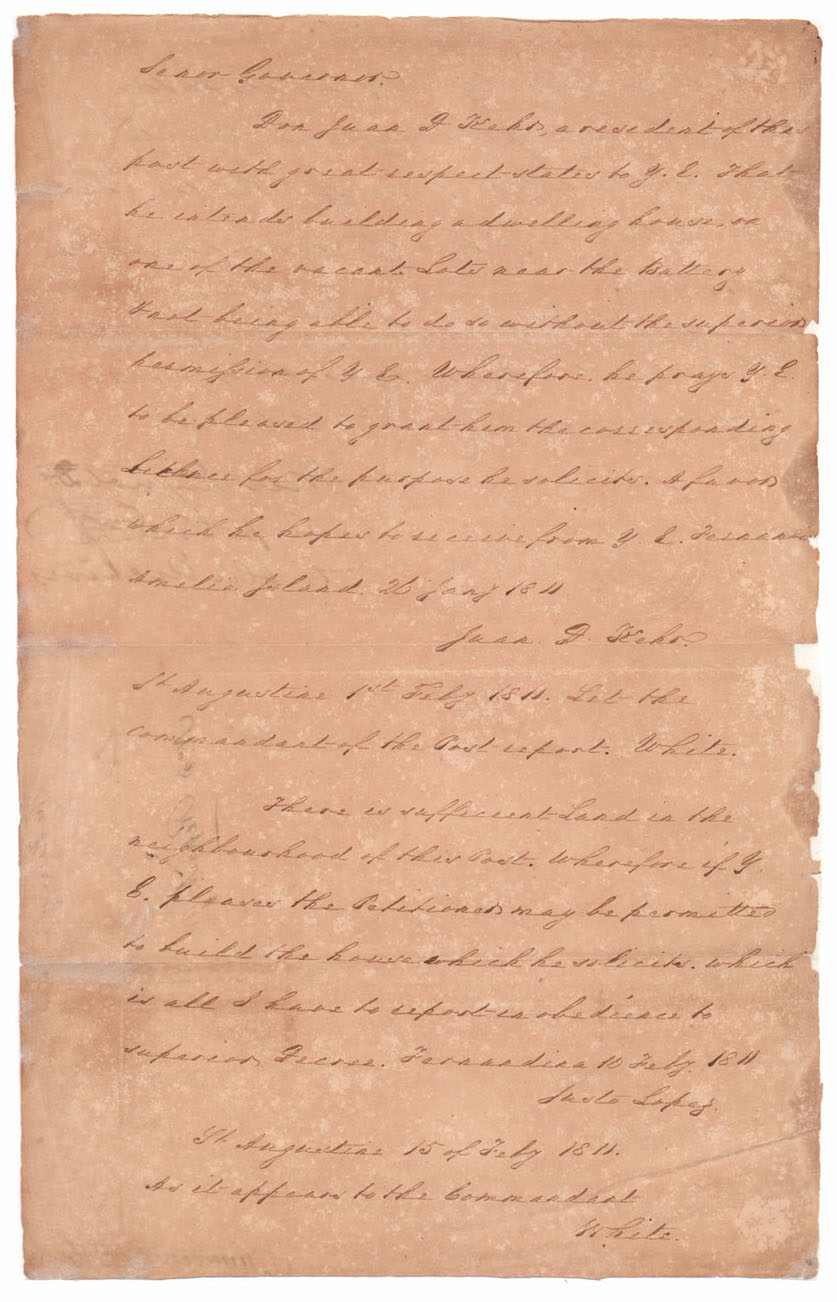 Senor Governor.
Don Juan D Kehr, a resedent of this
post with great respect states to Y. E. That
he intends building a dwelling house, on
one of the vacant Lots near the Battery
& not being able to do so without the superior
permission of Y E. Wherefore he prays Y. E.
to be pleased to grant him the corresponding
Licence for the purpose he solicits. A favor
which he hopes to receive from Y. E. Fernandi
Amelia Island. 26 Jany 1811
Juan. D. Kehr.
St Augustine 1st Feby 1811. Let the
commandant of the Post report. White.
There is sufficient Land in the
neighbourhood of this Post. Wherefore if Y.
E. pleases the Petitioner may be permitted
to build the house which he solicits. which
is all I have to report in obedience to
superior Decree. Fernandina 10 Feby. 1811
Justo Lopez.
St Augustine 15 of Feby 1811.
As it appears to the Commandant
White.